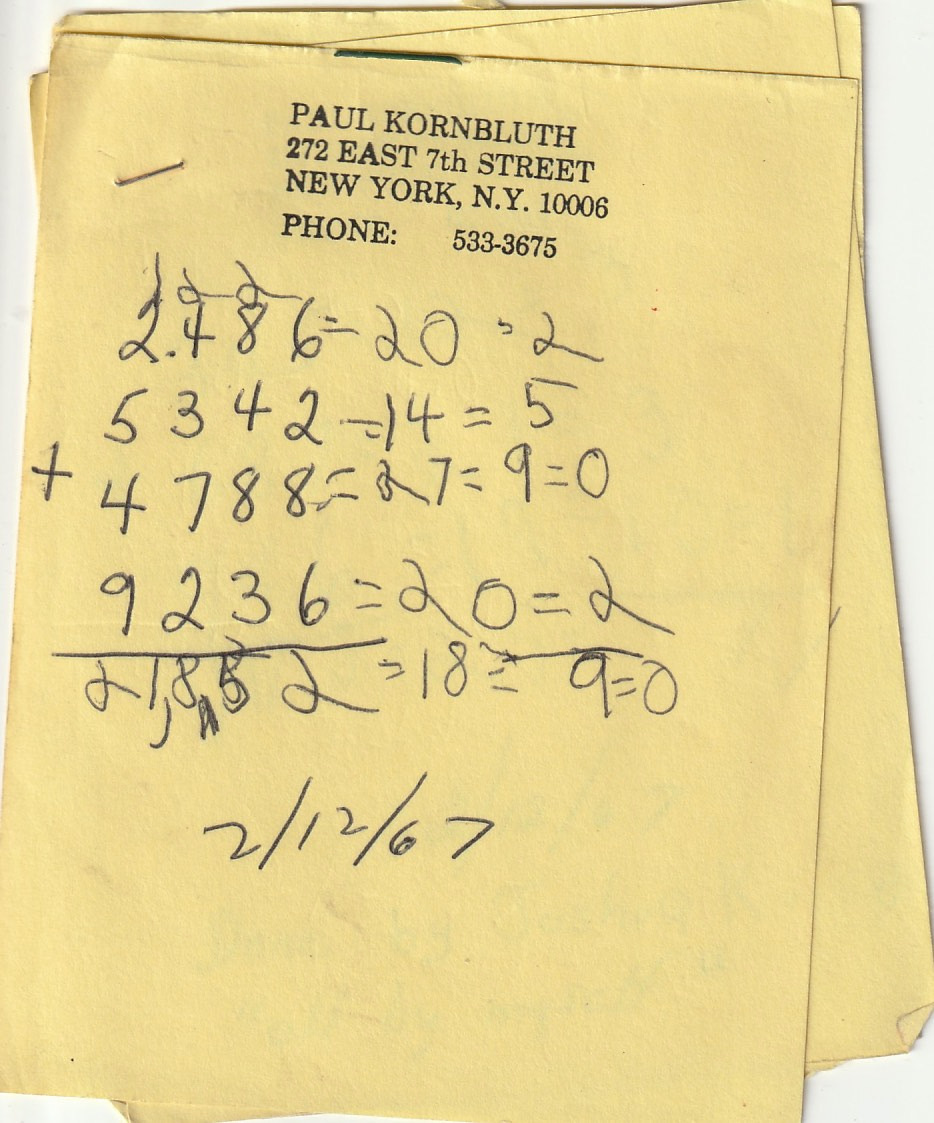 PAUL KORNBLUTH
272 EAST 7th STREET
NEW YORK, N.Y. 10006
PHONE: 533-3675
1 2 2
2.486=20=2
5342=14=5
+ 4788=27=9=0
9236=20=2
21,852=18=9=0
2/12/67